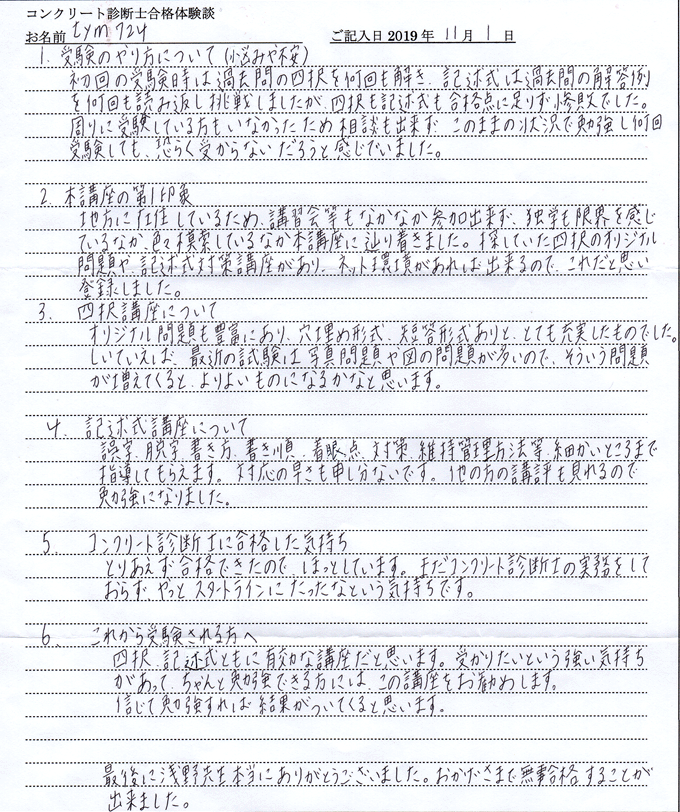 コンクリート診断士合格体験談
お名前 tym724 ご記入日 2019 年 11 月 1 日
1. 受験のやり方について(小悩みや不安)
初回の受験時は過去問の四択を何回も解き、記述式は過去問の解答例
を何回も読み返し挑戦しましたが、四択も記述式も合格点に足りず惨敗でした。
周りに受験している方もいなかったため相談も出来ず、このままの状況で勉強し何回
受験しても、恐らく受からないだろうと感じていました。
2. 本講座の第1印象
地方に在住しているため、講習会等もなかなか参加出来ず、独学も限界を感じ
ているなか、色々模索しているなか本講座に辿り着きました。探していた四択のオリジナル
問題や、記述式対策講座があり、ネット環境があれば出来るので、これだと思い
登録しました。
3. 四択講座について
オリジナル問題も豊富にあり、穴埋め形式、短答形式ありと、とても充実したものでした。
しいていえば、最近の試験は写真問題や図の問題が多いので、そういう問題
が増えてくると、よりよいものになるかなと思います。
4. 記述式講座について
誤字、脱字、書き方、書き順、着眼点、対策、維持管理方法等、細かいところまで
指導してもらえます。対応の早さも申し分ないです。他の方の講評も見れるので
勉強になりました。
5. コンクリート診断士に合格した気持ち
とりあえず合格できたので、ほっとしています。まだコンクリート診断士の実務をして
おらず、やっとスタートラインにたったなという気持ちです。
6. これから受験される方へ
四択、記述式ともに有効な講座だと思います。受かりたいという強い気持ち
があって、ちゃんと勉強できる方には、この講座をお勧めします。
信じて勉強すれば結果がついてくると思います。
最後に浅野先生本当にありがとうございました。おかげさまで無事合格することが
出来ました。